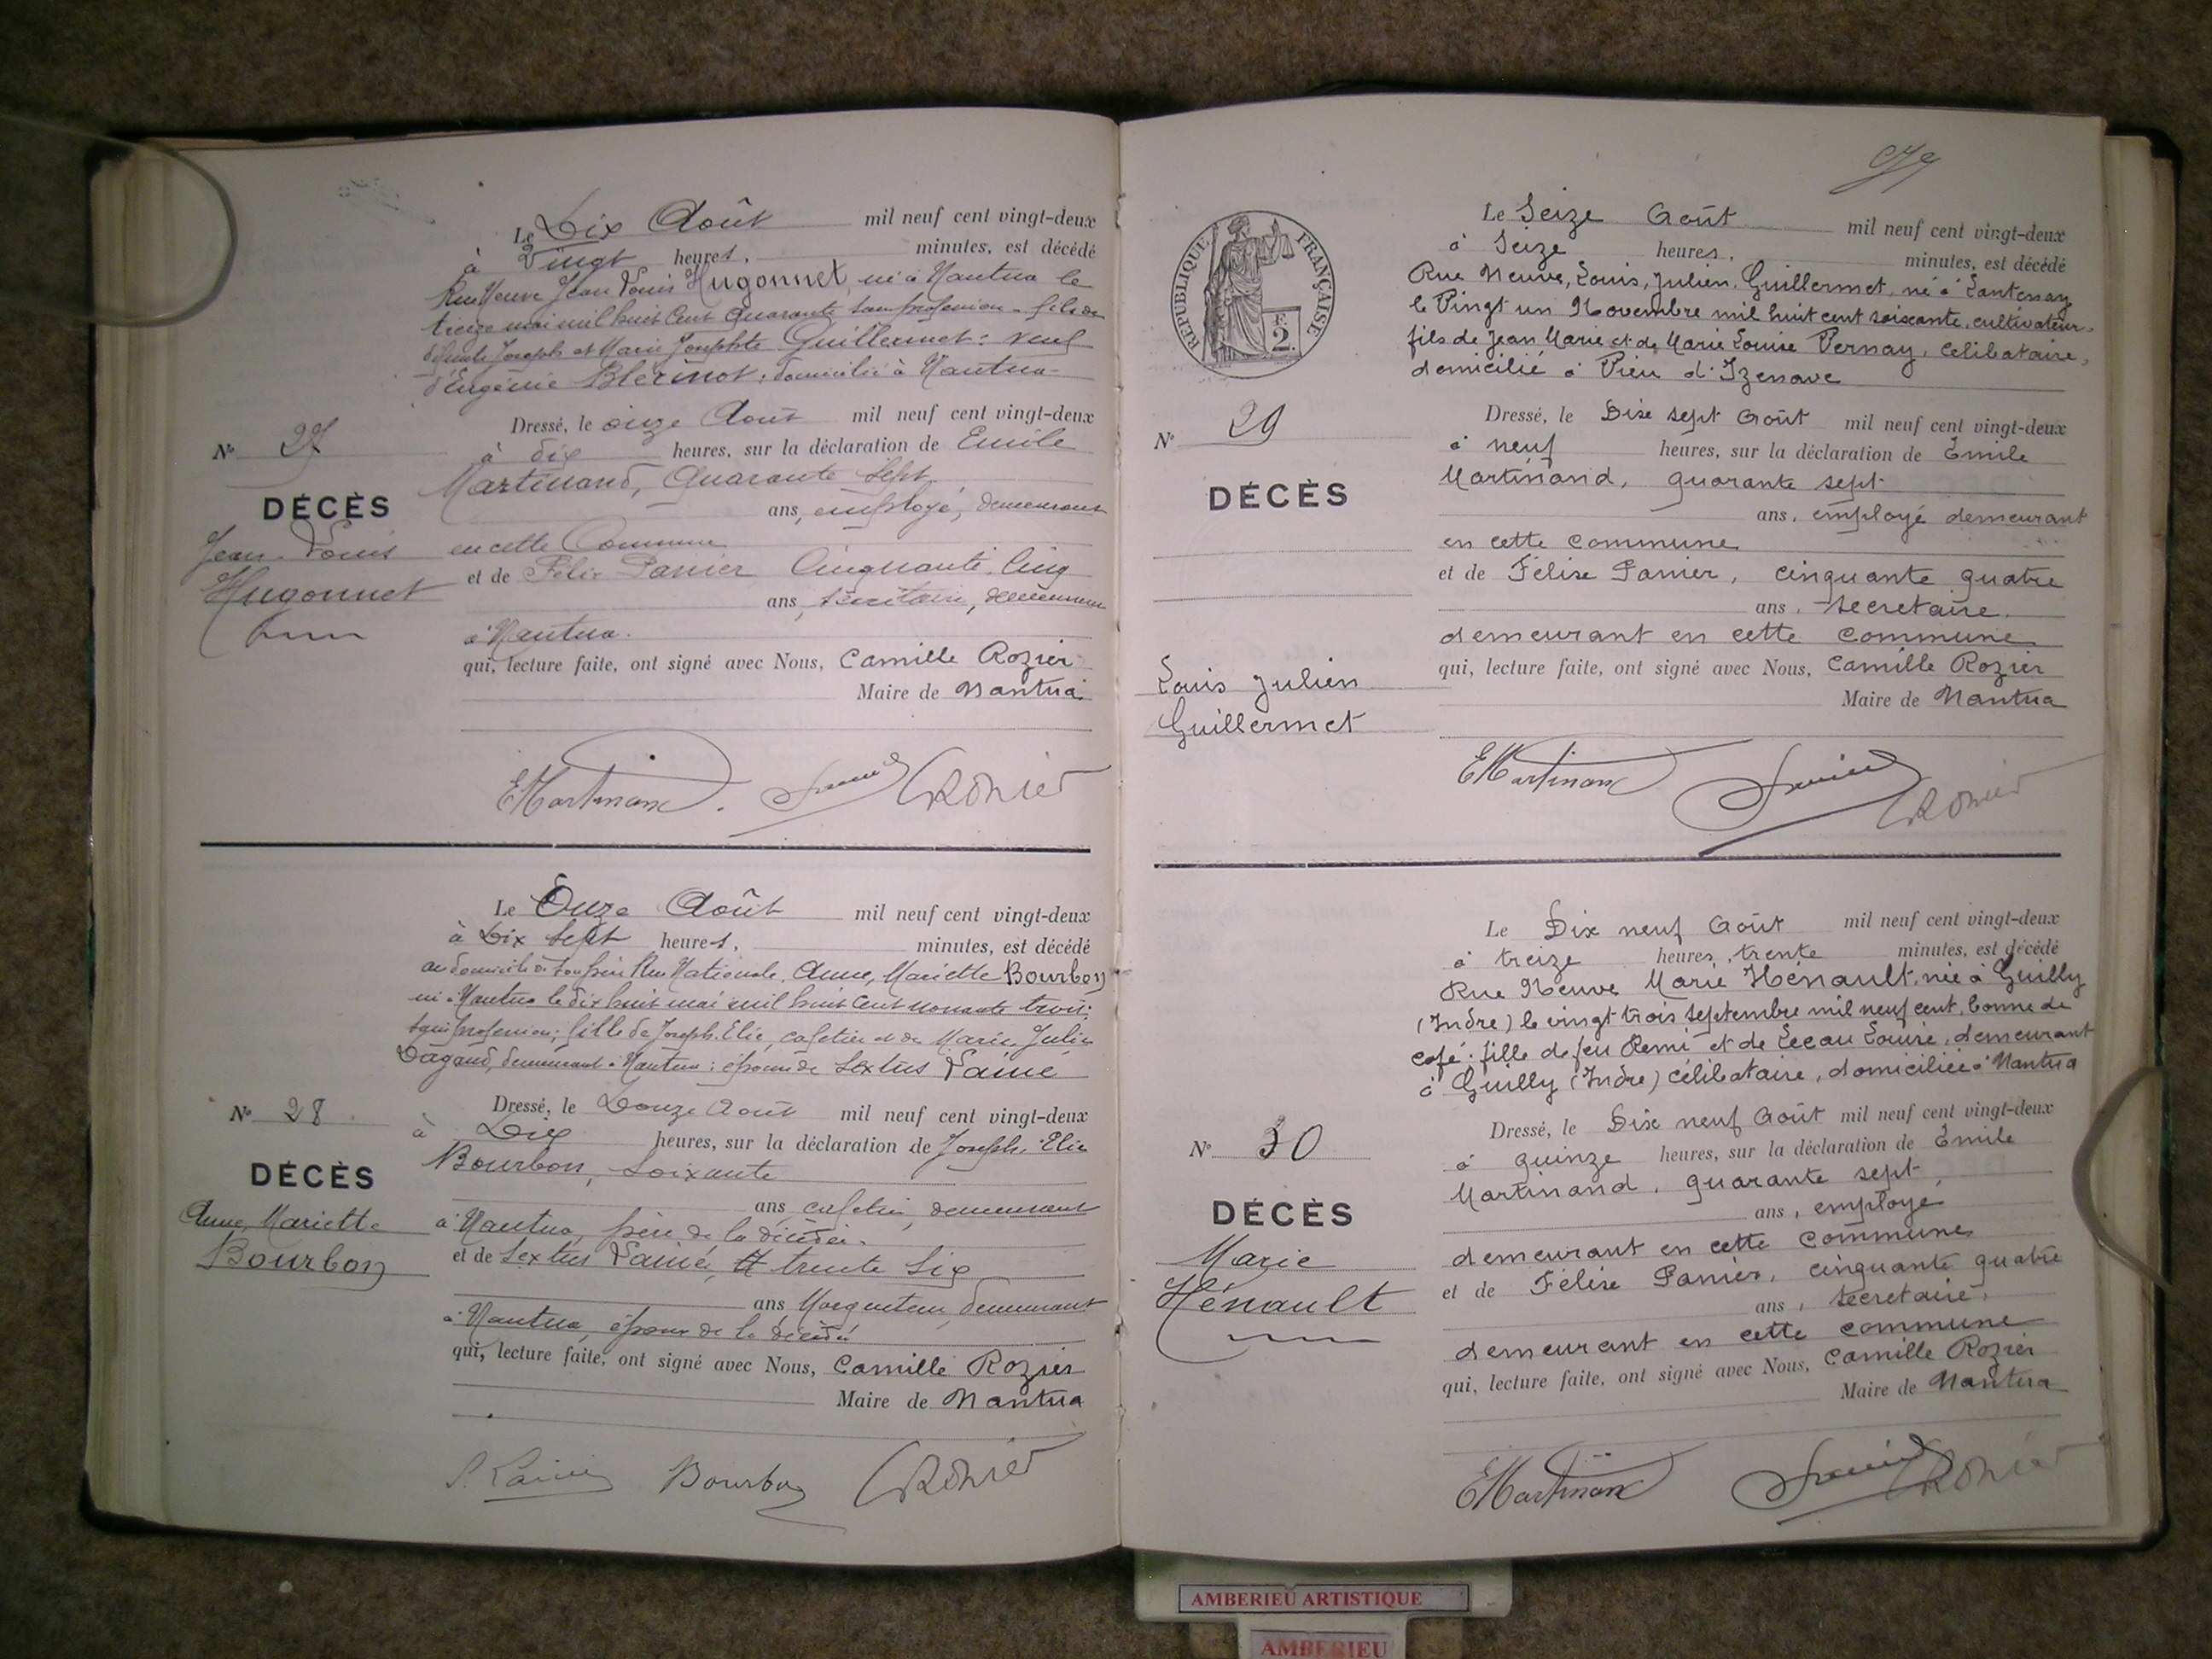 Le Dix Août mil neuf cent vingt-deux
à Vingt heures, minutes, est décédé
Rue Neuve Jean Louis Hugonnet, né à Nantua le
treize mai mil huit Cent Quarante sans profession - fils de
défunts Joseph et Marie Josephte Guillermet : veuf
d'Eugénie Blérinot, domicilié à Nantua
Dressé, le onze Août mil neuf cent vingt-deux
à dix heures, sur la déclaration de Emile
Martinand, Quarante Sept
ans, employé, demeurant
en cette Commune
et de Félix Panier Cinquante Cinq
ans, secrétaire, demeurant
à Nantua.
qui, lecture faite, ont signé avec Nous, Camille Rozier
Maire de Nantua
N° 27
DÉCÈS
Jean Louis
Hugonnet
EMartinand CRozier
Le Onze Août mil neuf cent vingt-deux
à Dix Sept heures, minutes, est décédé
au domicile de son père Rue Nationale, Anne, Mariette Bourbon
né à Nantua le dix huit mai mil huit Cent nonante trois;
sans profession; fille de Joseph Elie, cafetier et de Marie Julie
Dagand, demeurant à Nantua : épouse de Sextus Lainé
Dressé, le Douze Août mil neuf cent vingt-deux
à Dix heures, sur la déclaration de Joseph Elie
Bourbon, Soixante
ans, cafetier, demeurant
à Nantua, père de la décédée.
et de Sextus Lainé, trente Six
ans, demeurant
à Nantua, époux de la décédée
qui, lecture faite, ont signé avec Nous, Camille Rozier
Maire de Nantua
N° 28
DÉCÈS
Anne, Mariette
Bourbon
S. Lainé Bourbon CRozier
RÉPUBLIQUE FRANÇAISE
2
Le Seize Août mil neuf cent vingt-deux
à Seize heures, minutes, est décédé
Rue Neuve, Louis, Julien, Guillermet, né à Lantenay
le Vingt un Novembre mil huit cent soixante, cultivateur.
fils de Jean Marie et de Marie Louise Vernay, célibataire,
domicilié à Vieu d'Izenave
Dressé, le Dix sept Août mil neuf cent vingt-deux
à neuf heures, sur la déclaration de Emile
Martinand, quarante sept
ans, employé demeurant
en cette commune
et de Félix Panier, cinquante quatre
ans, secretaire.
demeurant en cette commune
qui, lecture faite, ont signé avec Nous, Camille Rozier
Maire de Nantua
N° 29
DÉCÈS
Louis Julien
Guillermet
EMartinand CRozier
Le Dix neuf Août mil neuf cent vingt-deux
à treize heures, trente minutes, est décédé
Rue Neuve Marie Hénault, née à Guilly
(Indre) le vingt trois septembre mil neuf cent, bonne de
café. fille de feu Remi et de Leeau Louise, demeurant
à Guilly (Indre) célibataire, domiciliée à Nantua
Dressé, le Dix neuf Août mil neuf cent vingt-deux
à quinze heures, sur la déclaration de Emile
Martinand, quarante sept
ans, employé
demeurant en cette commune
et de Félix Panier, cinquante quatre
ans, secretaire,
demeurant en cette commune
qui, lecture faite, ont signé avec Nous, Camille Rozier
Maire de Nantua
N° 30
DÉCÈS
Marie
Hénault
EMartinand CRozier
AMBERIEU ARTISTIQUE
AMBERIEU